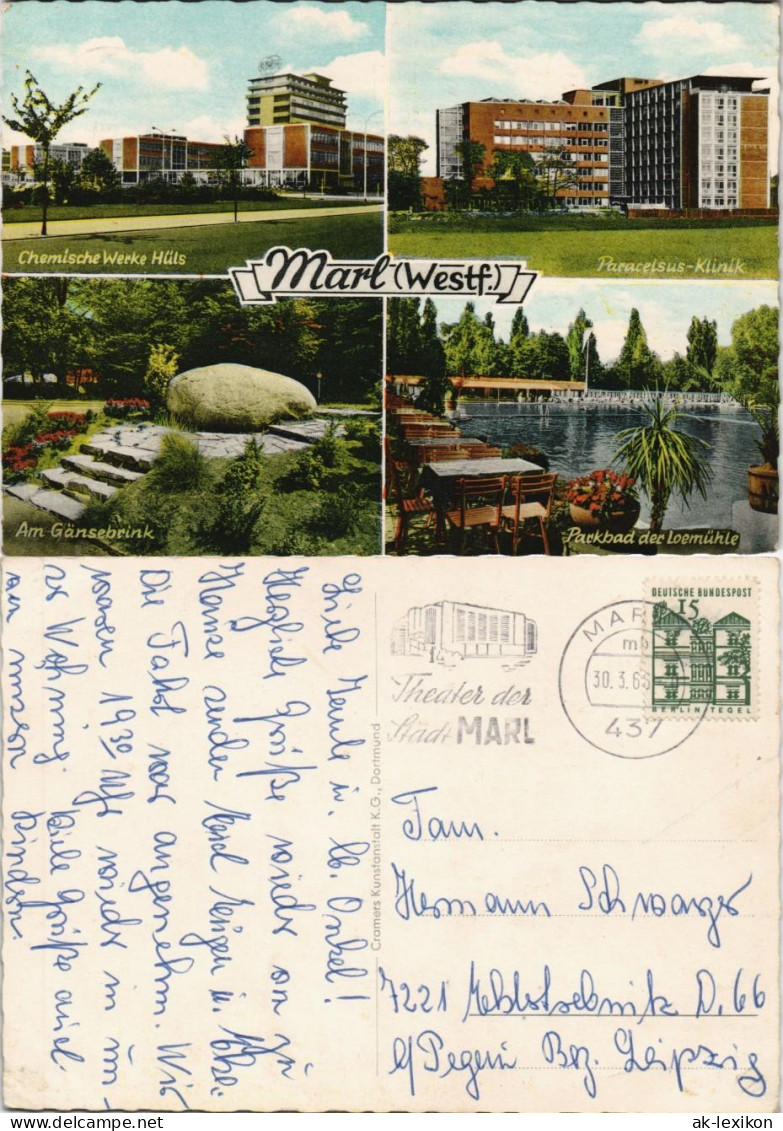 Chemische Werke Hüls
Paracelsus-Klinik
Marl (Westf.)
Am Gänsebrink
Parkbad der Loemühle
Liebe Leute u. lb. Onkel!
Herzliche Grüße wieder von zu
Hause senden Karl
Die Fahrt war angenehm. Wir
waren 19³⁰ Uhr wieder in un-
Wohnung. Viele Grüße auch
von unsern Kindern.
Cramers Kunstanstalt K.G., Dortmund
Theater der
Stadt MARL
MARL
mb
30.3.65
437
DEUTSCHE BUNDESPOST
15
BERLIN-TEGEL
Fam.
Hermann Schwarzer
7221
Bez. Leipzig
ak-lexikon